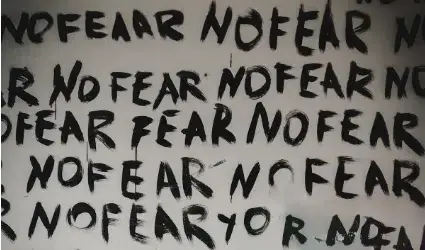 NOFEAAR NOFEAR N
R NO FEAR NOFEAR NO
OFEAR FEAR NOFEAR
NOFEAR NOFEAR
R NOFEARYO R NOFEA